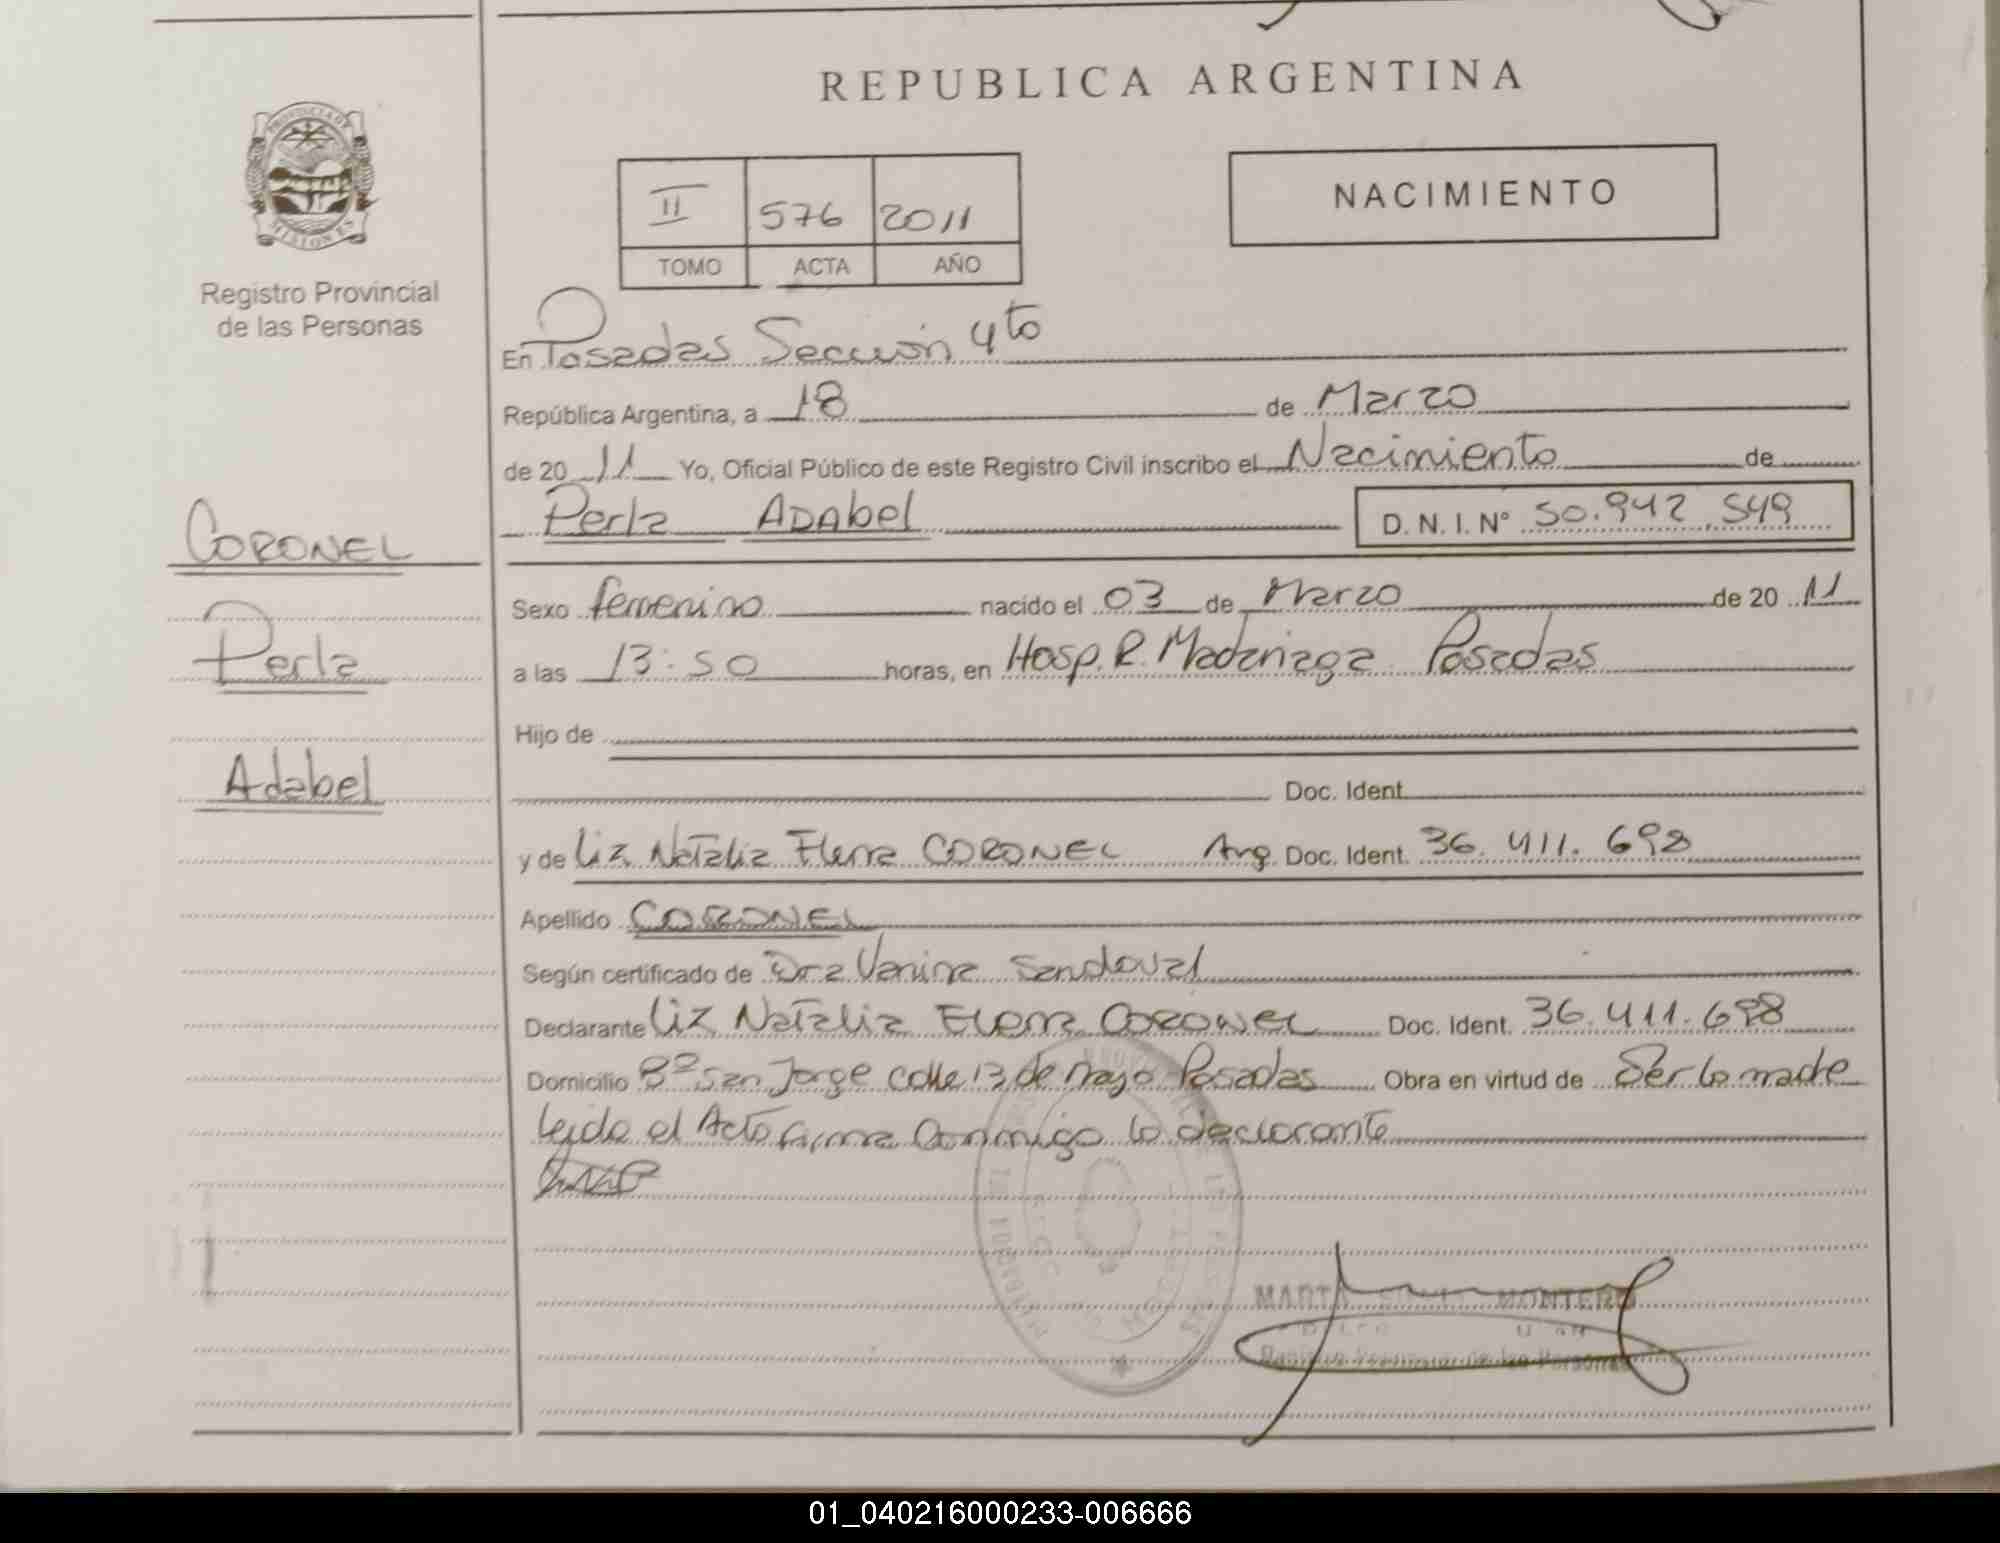 REPUBLICA ARGENTINA
PROVINCIA DE
MISIONES
Registro Provincial
de las Personas
NACIMIENTO
II 576 2011
TOMO ACTA AÑO
En Posadas Sección 4to
República Argentina, a 18 de Marzo
de 20 11 Yo, Oficial Público de este Registro Civil inscribo el Nacimiento de
Perla ADAbel D. N. I. Nº 50.942.549
CORONEL
Perla
Adabel
Sexo femenino nacido el 03 de Marzo de 20 11
a las 13:50 horas, en Hosp. R. Madariaga Posadas
Hijo de
Doc. Ident.
y de Liz Natalia Elena CORONEL Arg. Doc. Ident. 36.411.698
Apellido CORONEL
Según certificado de Dra Vanina Sandoval
Declarante Liz Natalia Elena CORONEL Doc. Ident. 36.411.698
Domicilio Bº San Jorge calle 13 de Mayo Posadas Obra en virtud de Ser la madre
leida el Acta firma Conmigo la declarante
MARTA MONTERO
Registro Provincial de las Personas
01_040216000233-006666